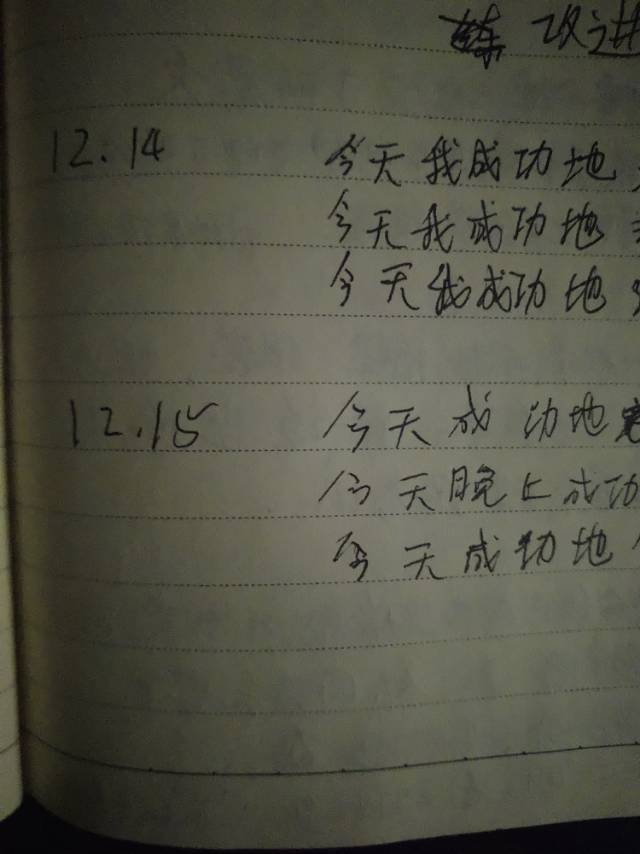 改进
12.14 今天我成功地
今天我成功地
今天我成功地
12.15 今天成功地
今天晚上成功
今天成功地